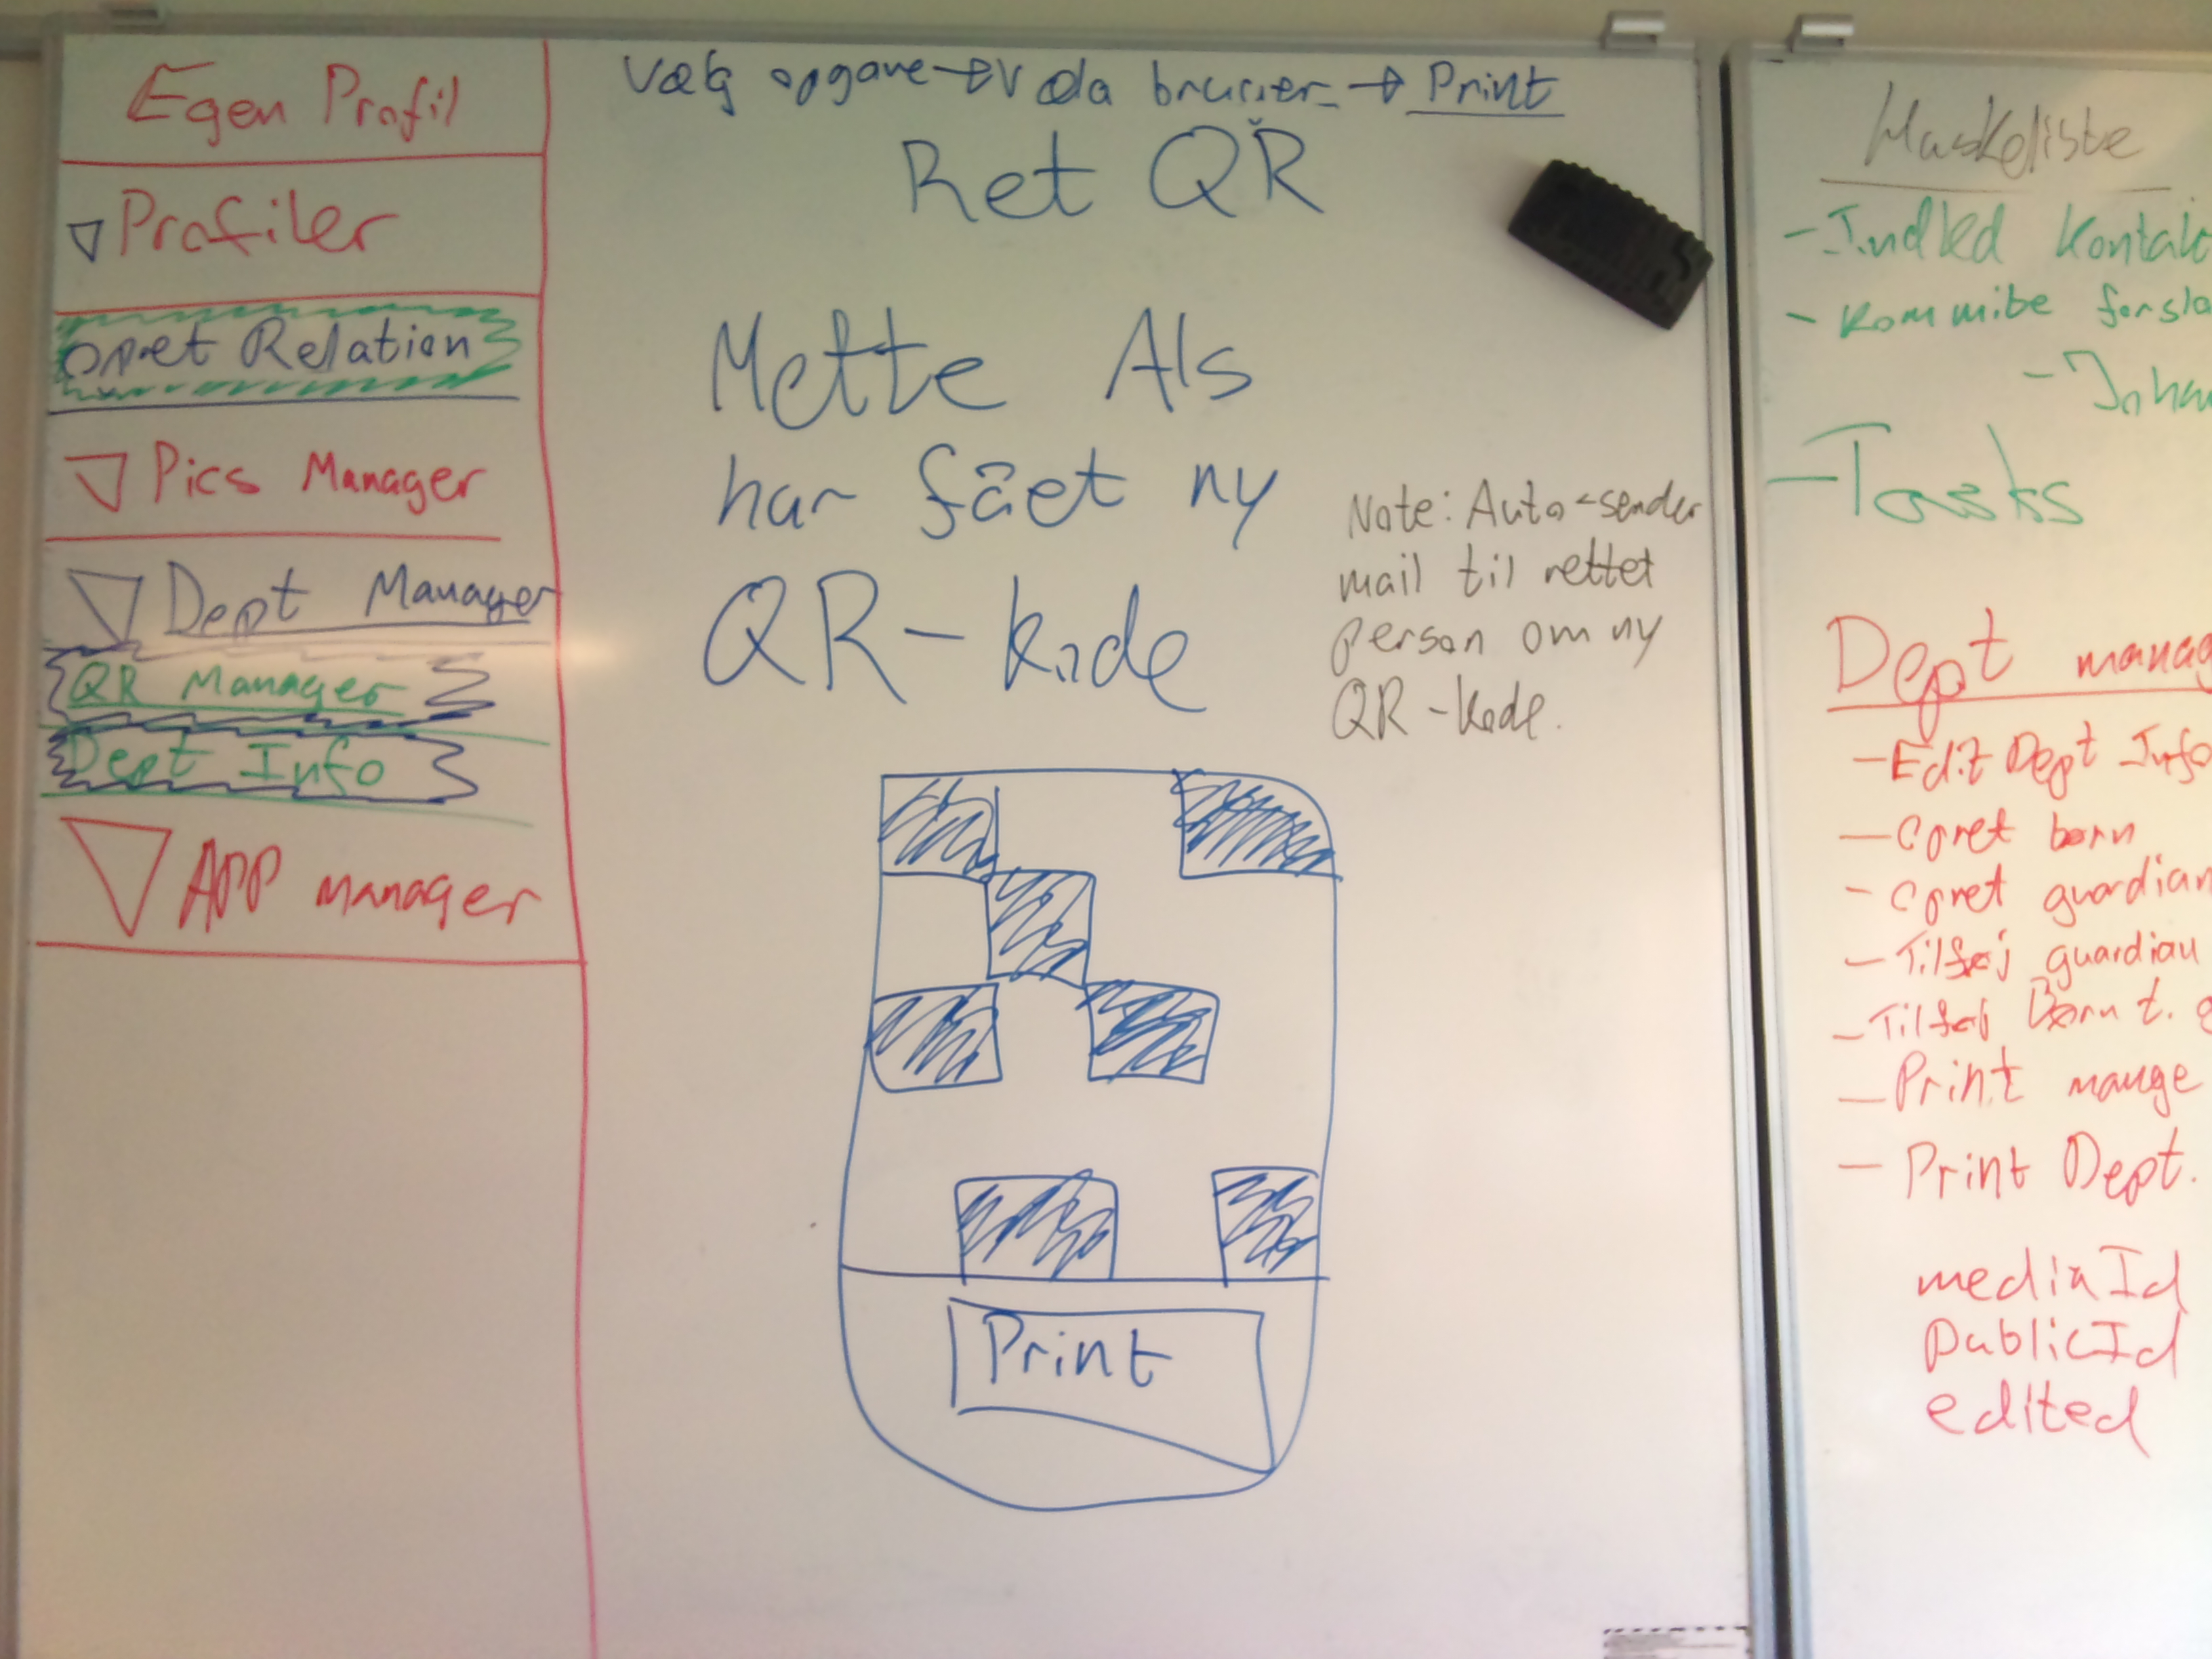 Egen Profil
Profiler
Opret Relation
Pics Manager
Dept Manager
QR Manager
Dept Info
APP manager
Vælg opgave → → Print
Ret QR
Mette Als
har fået ny
QR-kode
Note: Auto-sender
mail til rettet
person om ny
QR-kode.
Print
Huskeliste
- Indled kontakt
- kommibe forsla
- Johan
- Tasks
Dept manag
- Edit Dept Info
- Opret børn
- Opret guardian
- Tilføj guardian
- Tilføj Børn t. g
- Print mange
- Print Dept.
mediaId
publicId
edited